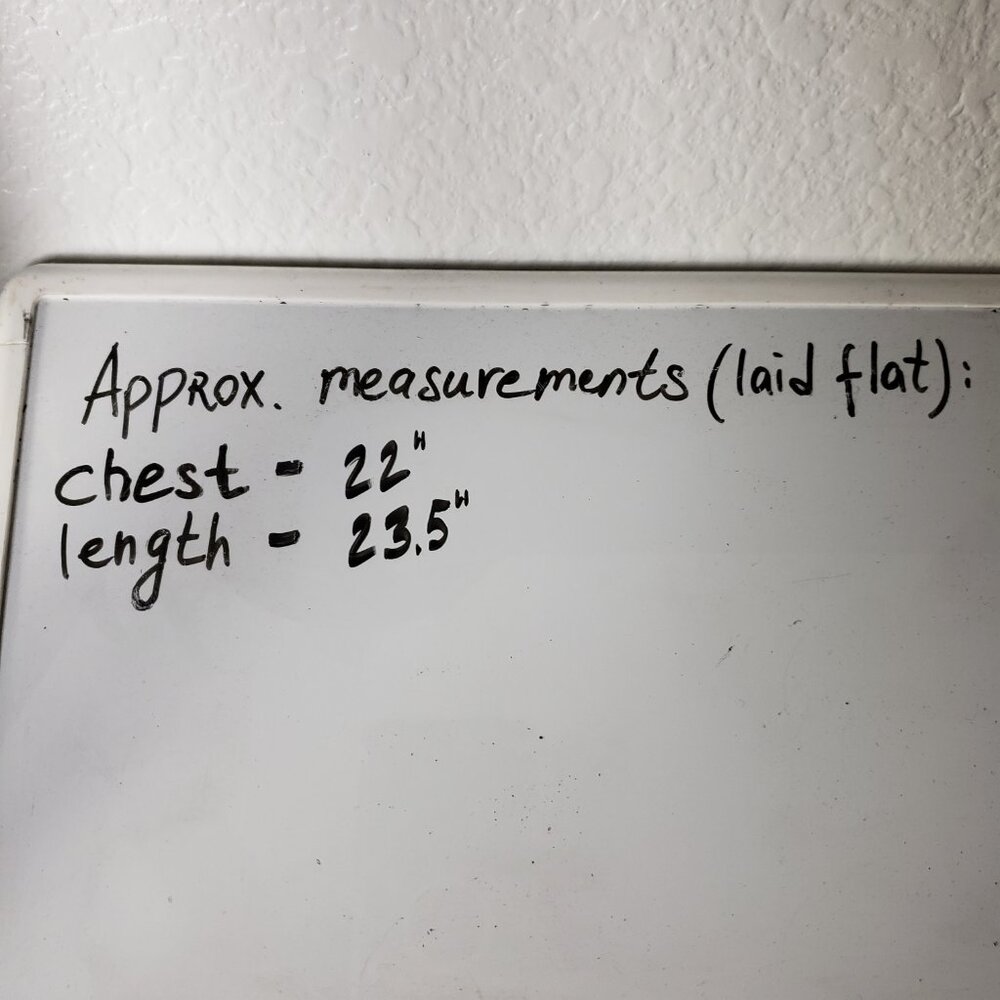 Approx. measurements (laid flat):
chest - 22"
length - 23.5"